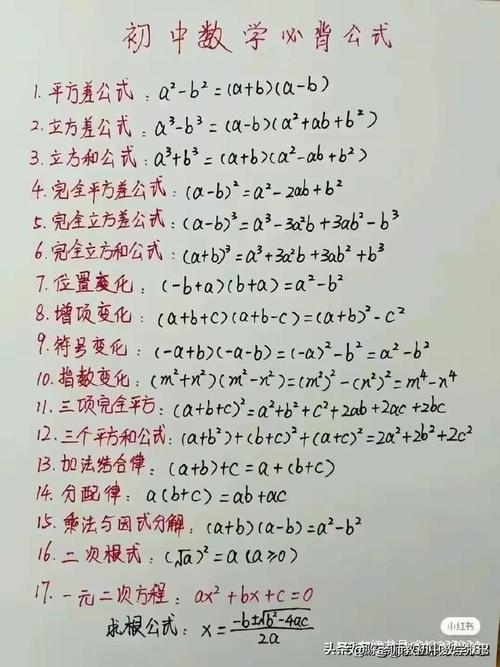 初中数学必背公式
1. 平方差公式：a²-b²=(a+b)(a-b)
2. 立方差公式：a³-b³=(a-b)(a²+ab+b²)
3. 立方和公式：a³+b³=(a+b)(a²-ab+b²)
4. 完全平方差公式：(a-b)²=a²-2ab+b²
5. 完全立方差公式：(a-b)³=a³-3a²b+3ab²-b³
6. 完全立方和公式：(a+b)³=a³+3a²b+3ab²+b³
7. 位置变化：(-b+a)(b+a)=a²-b²
8. 增项变化：(a+b+c)(a+b-c)=(a+b)²-c²
9. 符号变化：(-a+b)(-a-b)=(-a)²-b²=a²-b²
10. 指数变化：(m²+n²)(m²-n²)=(m²)²-(n²)²=m⁴-n⁴
11. 三项完全平方：(a+b+c)²=a²+b²+c²+2ab+2ac+2bc
12. 三个平方和公式：(a+b²)+(b+c)²+(a+c)²=2a²+2b²+2c²
13. 加法结合律：(a+b)+c=a+(b+c)
14. 分配律：a(b+c)=ab+ac
15. 乘法与因式分解：(a+b)(a-b)=a²-b²
16. 二次根式：(√a)²=a(a≥0)
17. 一元二次方程：ax²+bx+c=0
求根公式：x=\frac{-b±√b²-4ac}{2a}
小红书